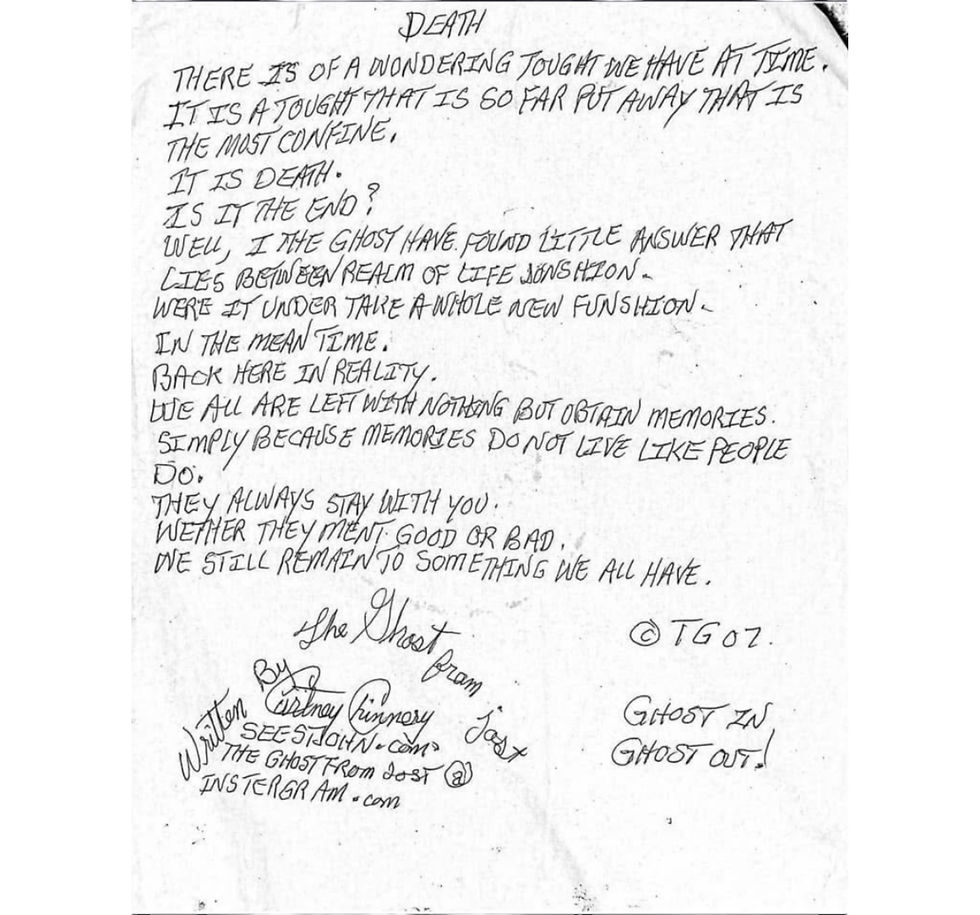 DEATH
THERE IS OF A WONDERING TOUGHT WE HAVE AT TIME.
IT IS A TOUGHT THAT IS SO FAR PUT AWAY THAT IS
THE MOST CONFINE.
IT IS DEATH.
IS IT THE END?
WELL, I THE GHOST HAVE FOUND LITTLE ANSWER THAT
LIES BETWEEN REALM OF LIFE
WERE IT UNDER TAKE A WHOLE NEW FUNSHION.
IN THE MEAN TIME.
BACK HERE IN REALITY.
WE ALL ARE LEFT WITH NOTHING BUT OBTAIN MEMORIES.
SIMPLY BECAUSE MEMORIES DO NOT LIVE LIKE PEOPLE
DO.
THEY ALWAYS STAY WITH YOU.
WETHER THEY MENT GOOD OR BAD.
WE STILL REMAIN TO SOMETHING WE ALL HAVE.
The Ghost from Jost
© TG 07.
Written By Curtney Chinnery
SEESTJOHN.com
THE GHOST FROM JOST @
INSTERGRAM.com
GHOST IN
GHOST OUT!